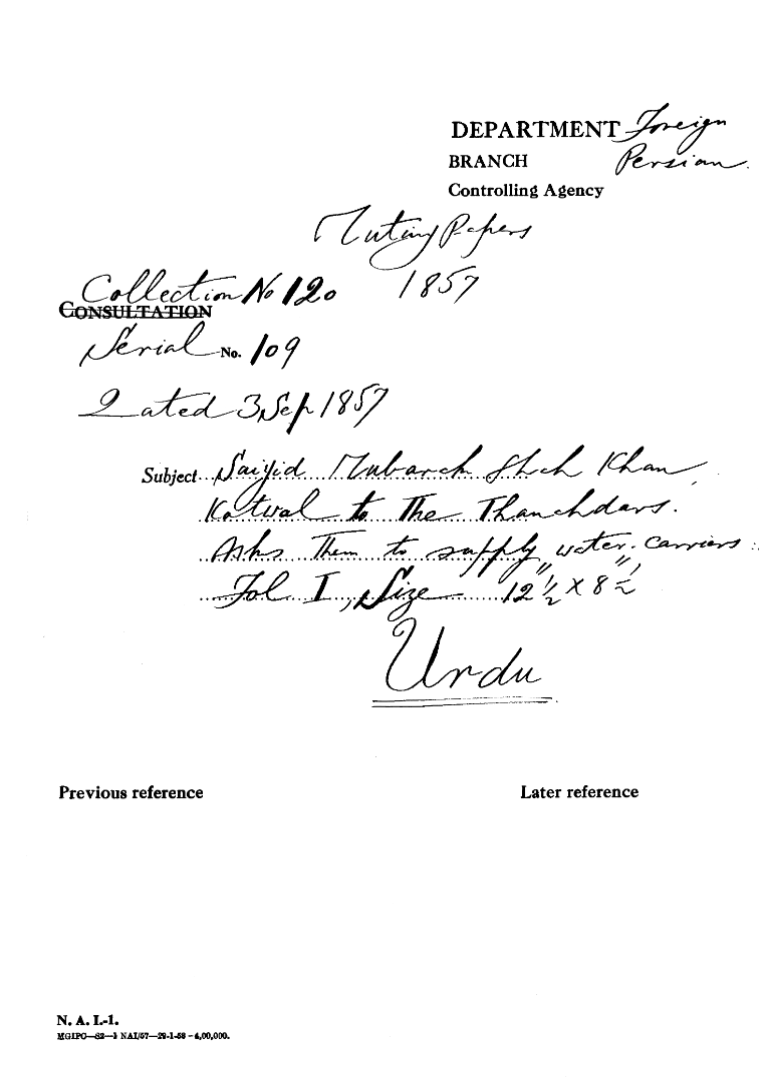 DEPARTMENT Foreign
BRANCH Persian.
Controlling Agency
Mutiny Papers
Collection No 120 1857
CONSULTATION
Serial No. 109
Dated 3 Sep 1857
Subject Saiyid Mubarak Shah Khan,
Kotwal to the Thanehdars.
Asks them to supply water-carriers.
Fol I, Size 12½" X 8½"
Urdu
Previous reference Later reference
N. A. I.-1.
MGIPC—S2—1 NAI/57—29-1-58—4,00,000.